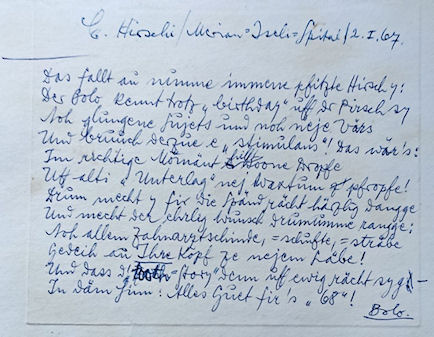 C. Hirschi / Meiran-Isch-Spital / 2. I. 67.
Das fallt au numme immene pfitzte Hirsch y:
Der Bolo kennt trotz „birthday" uff dr Pirsch sy
Noh glungene Sujets und noh neje Värs
Und bruucht derzue e „stimulans"! Das wär's!
Im richtige Momänt Droone Dropfe
Uff alti „Unterlag" nei Waxtum pfropfe!
Drum mecht y fir die Spänd rächt härzlig dangge
Und mecht der ehrlig Wunsch drumumme rangge:
Noh allem Zahnarztschinde, =schufte, =sträbe
Gedeih au Ihre Kopf ze nejem Läbe!
Und dass d' =Story" denn uff ewig rächt syg! –
In däm Sinn: Alles Guet fir's „68"!
Bolo.